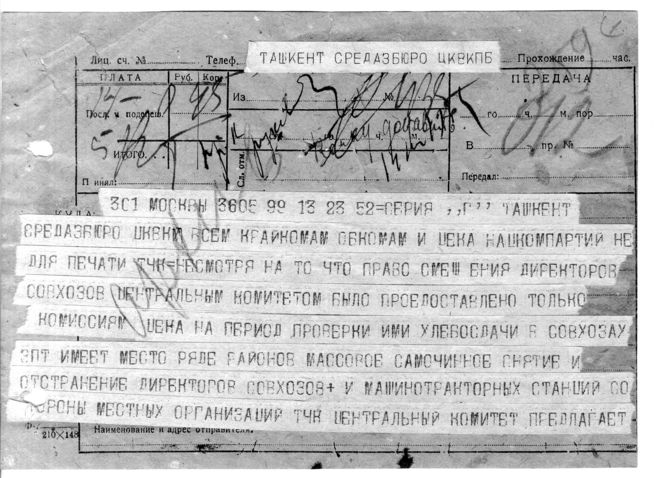 Лиц. сч. № Телеф. ТАШКЕНТ СРЕДАЗБЮРО ЦКВКПБ Прохождение час.
ПЛАТА Руб. Коп. ПЕРЕДАЧА
Из №
го ч. м. пор
ИТОГО В пр. №
Сл. отм. Передал:
КУДА
ЗС1 МОСКВЫ 3605 99 13 23 52=СЕРИЯ ,,Г’’ ТАШКЕНТ
СРЕДАЗБЮРО ЦКВКП ВСЕМ КРАЙКОМАМ ОБКОМАМ И ЦЕКА НАЦКОМПАРТИЙ НЕ
ДЛЯ ПЕЧАТИ ТЧК=НЕСМОТРЯ НА ТО ЧТО ПРАВО СМЕЩ ЕНИЯ ДИРЕКТОРОВ
СОВХОЗОВ ЦЕНТРАЛЬНЫМ КОМИТЕТОМ БЫЛО ПРЕДОСТАВЛЕНО ТОЛЬКО
КОМИССИЯМ ЦЕКА НА ПЕРИОД ПРОВЕРКИ ИМИ ХЛЕБОСДАЧИ В СОВХОЗАХ
ЗПТ ИМЕЕТ МЕСТО РЯДЕ РАЙОНОВ МАССОВОЕ САМОЧИННОЕ СНЯТИЕ И
ОТСТРАНЕНИЕ ДИРЕКТОРОВ СОВХОЗОВ+ И МАШИНОТРАКТОРНЫХ СТАНЦИЙ СО
ТОРОНЫ МЕСТНЫХ ОРГАНИЗАЦИЙ ТЧК ЦЕНТРАЛЬНЫЙ КОМИТЕТ ПРЕДЛАГАЕТ
210×148 Наименование и адрес отправителя.